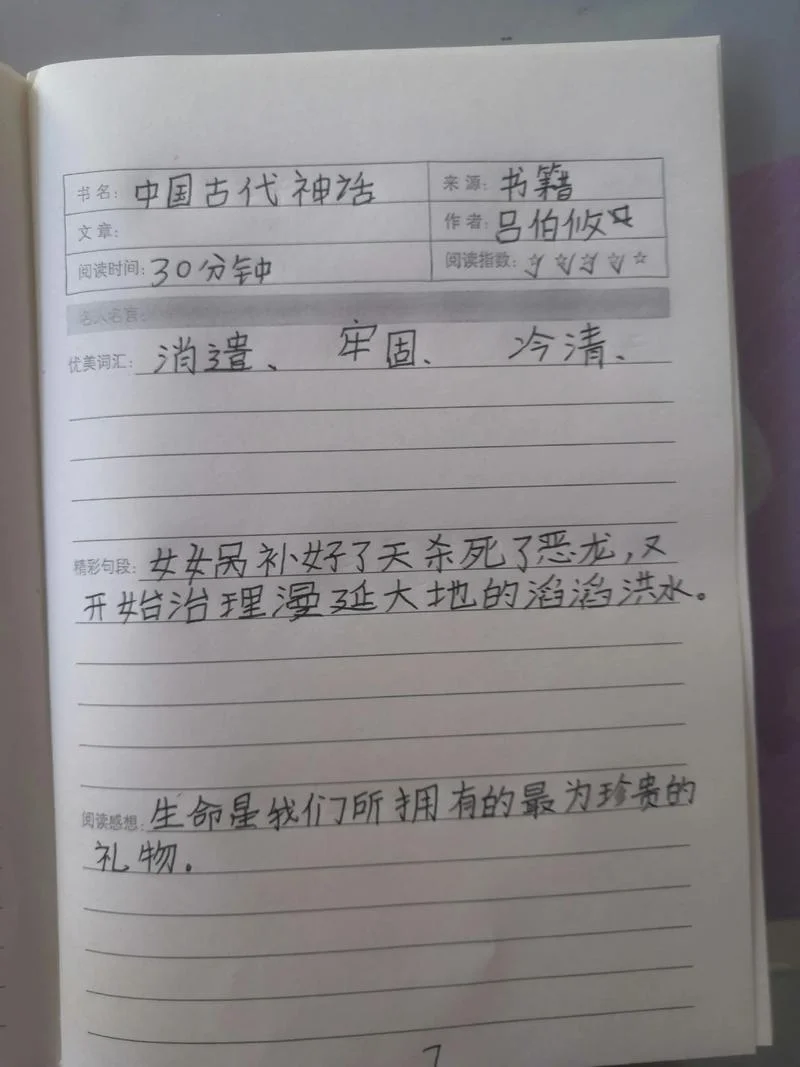 书名: 中国古代神话 来源: 书籍
文章: 作者: 吕伯攸
阅读时间: 30分钟 阅读指数: ☆☆☆☆☆
名人名言:
优美词汇: 消遣、 牢固、 冷清、
精彩句段: 女娲补好了天杀死了恶龙,又
开始治理漫延大地的滔滔洪水。
阅读感想: 生命是我们所拥有的最为珍贵的
礼物。
7